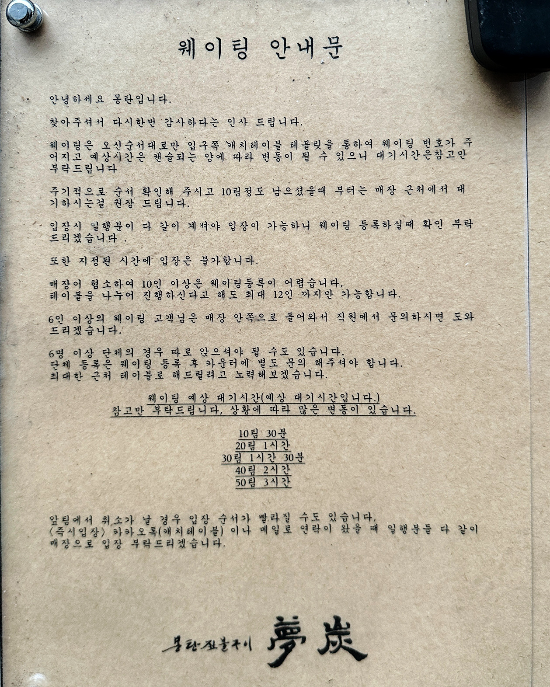 웨이팅 안내문
안녕하세요 몽탄입니다.
찾아주셔서 다시한번 감사하다는 인사 드립니다.
웨이팅은 오신순서대로만 입구쪽 캐치테이블 테블릿을 통하여 웨이팅 번호가 주
어지고 예상시간은 캔슬되는 양에 따라 변동이 될 수 있으니 대기시간은참고만
부탁드립니다
주기적으로 순서 확인해 주시고 10팀정도 남으셨을때 부터는 매장 근처에서 대
기하시는걸 권장 드립니다.
입장시 일행분이 다 같이 계셔야 입장이 가능하니 웨이팅 등록하실때 확인 부탁
드리겠습니다 .
또한 지정된 시간에 입장은 불가합니다.
매장이 협소하여 10인 이상은 웨이팅등록이 어렵습니다.
테이블을 나누어 진행하신다고 해도 최대 12인 까지만 가능합니다.
6인 이상의 웨이팅 고객님은 매장 안쪽으로 들어와서 직원에서 문의하시면 도와
드리겠습니다.
6명 이상 단체의 경우 따로 앉으셔야 될 수도 있습니다.
단체 등록은 웨이팅 등록 후 카운터에 별도 문의 해주셔야 합니다.
최대한 근처 테이블로 해드릴려고 노력해보겠습니다.
웨이팅 예상 대기시간(예상 대기시간입니다.)
참고만 부탁드립니다, 상황에 따라 많은 변동이 있습니다.
10팀 30분
20팀 1시간
30팀 1시간 30분
40팀 2시간
50팀 3시간
앞팀에서 취소가 날 경우 입장 순서가 빨라질 수도 있습니다,
<즉시입장> 카카오톡(캐치테이블) 이나 메일로 연락이 왔을 때 일행분들 다 같이
매장으로 입장 부탁드리겠습니다.
몽탄 짚불구이 夢炭